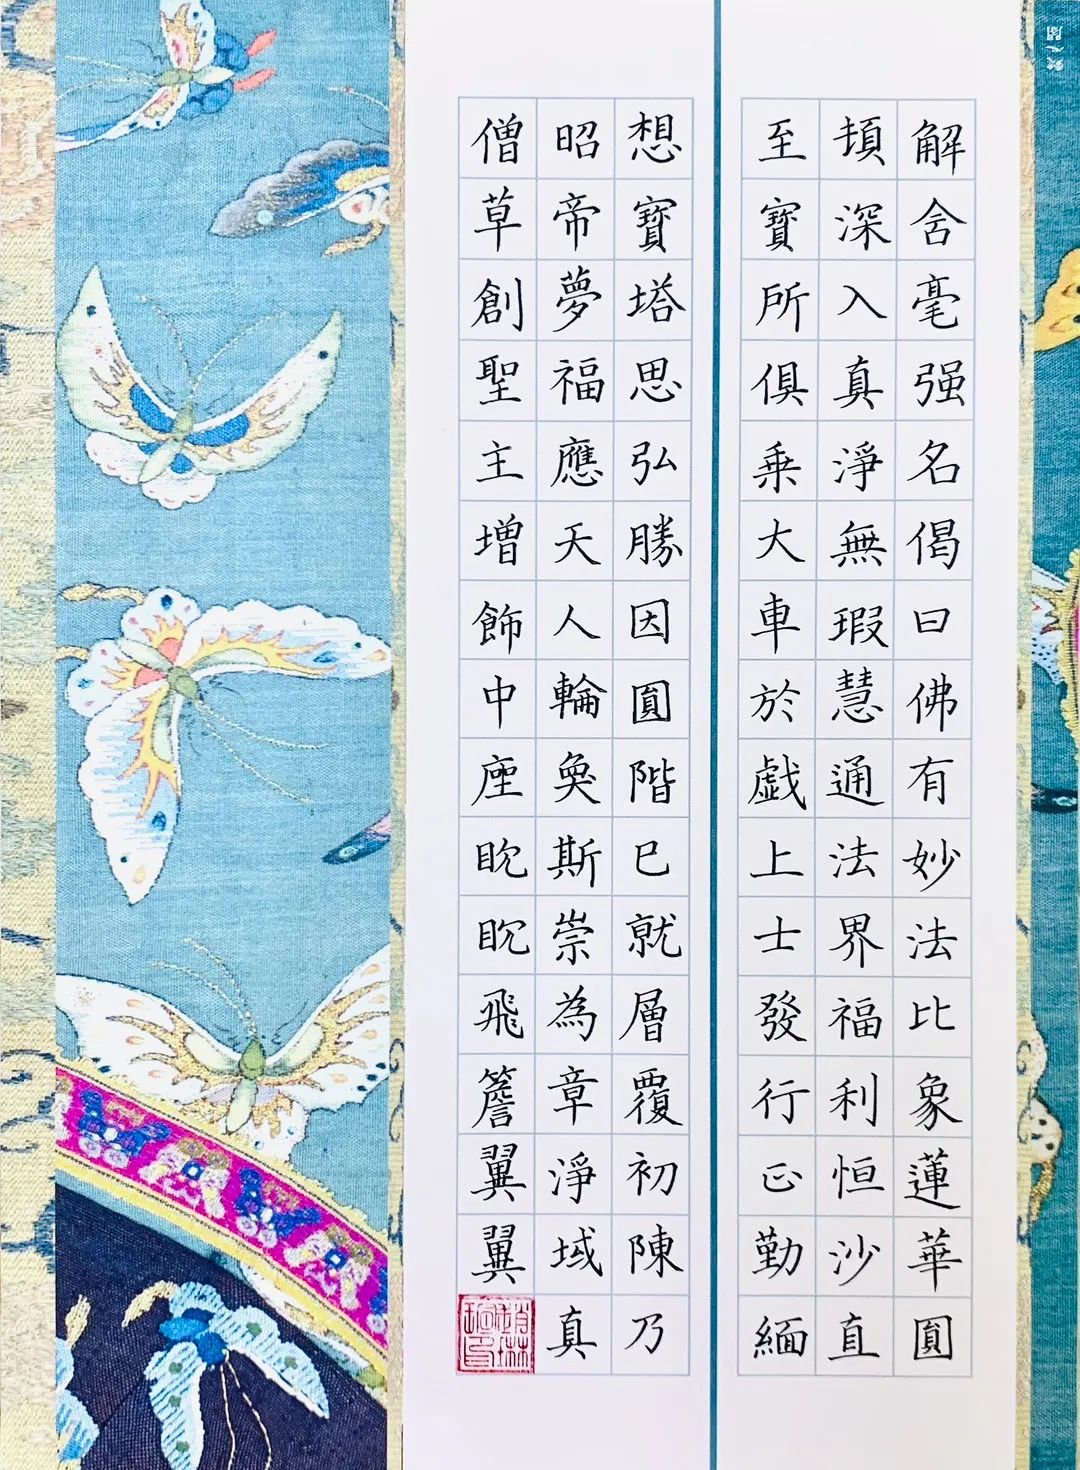 解舍毫强名偈曰佛有妙法比象蓮華圓
頓深入真淨無瑕慧通法界福利恒沙直
至寶所俱乘大車於戯上士發行正勤緬
想寶塔思弘勝因圓階已就層覆初陳乃
昭帝夢福應天人輪奐斯崇為章淨域真
僧草創聖主增飾中座眈眈飛簷翼翼